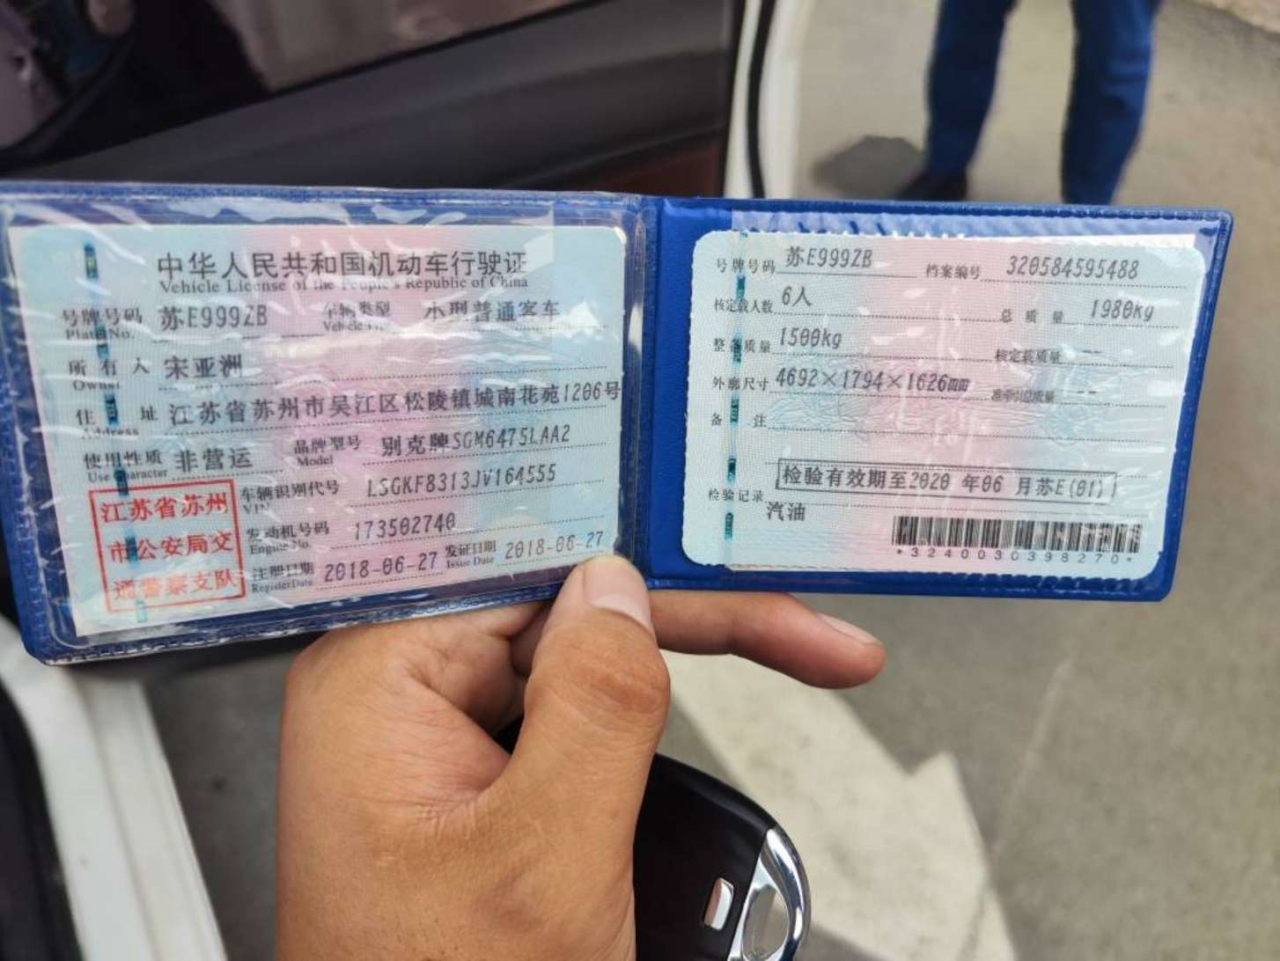 中华人民共和国机动车行驶证
Vehicle License of the People's Republic of China
号牌号码 苏E999ZB 车辆类型 小型普通客车
Plate No. Vehicle Type
所有人 宋亚洲
Owner
住址 江苏省苏州市吴江区松陵镇城南花苑1206号
Address
使用性质 非营运 品牌型号 别克牌SGM6475LAA2
Use Character Model
江苏省苏州
市公安局交
通警察支队
车辆识别代号 LSGKF8313JV164555
VIN
发动机号码 173502740
Engine No.
注册日期 2018-06-27 发证日期 2018-06-27
Register Date Issue Date
号牌号码 苏E999ZB 档案编号 320584595488
核定载人数 6人 总质量 1980kg
整备质量 1500kg 核定载质量 --
外廓尺寸 4692×1794×1626mm 准牵引总质量 --
备注
检验有效期至2020年06月苏E(01)
检验记录
汽油
*3240030398270*